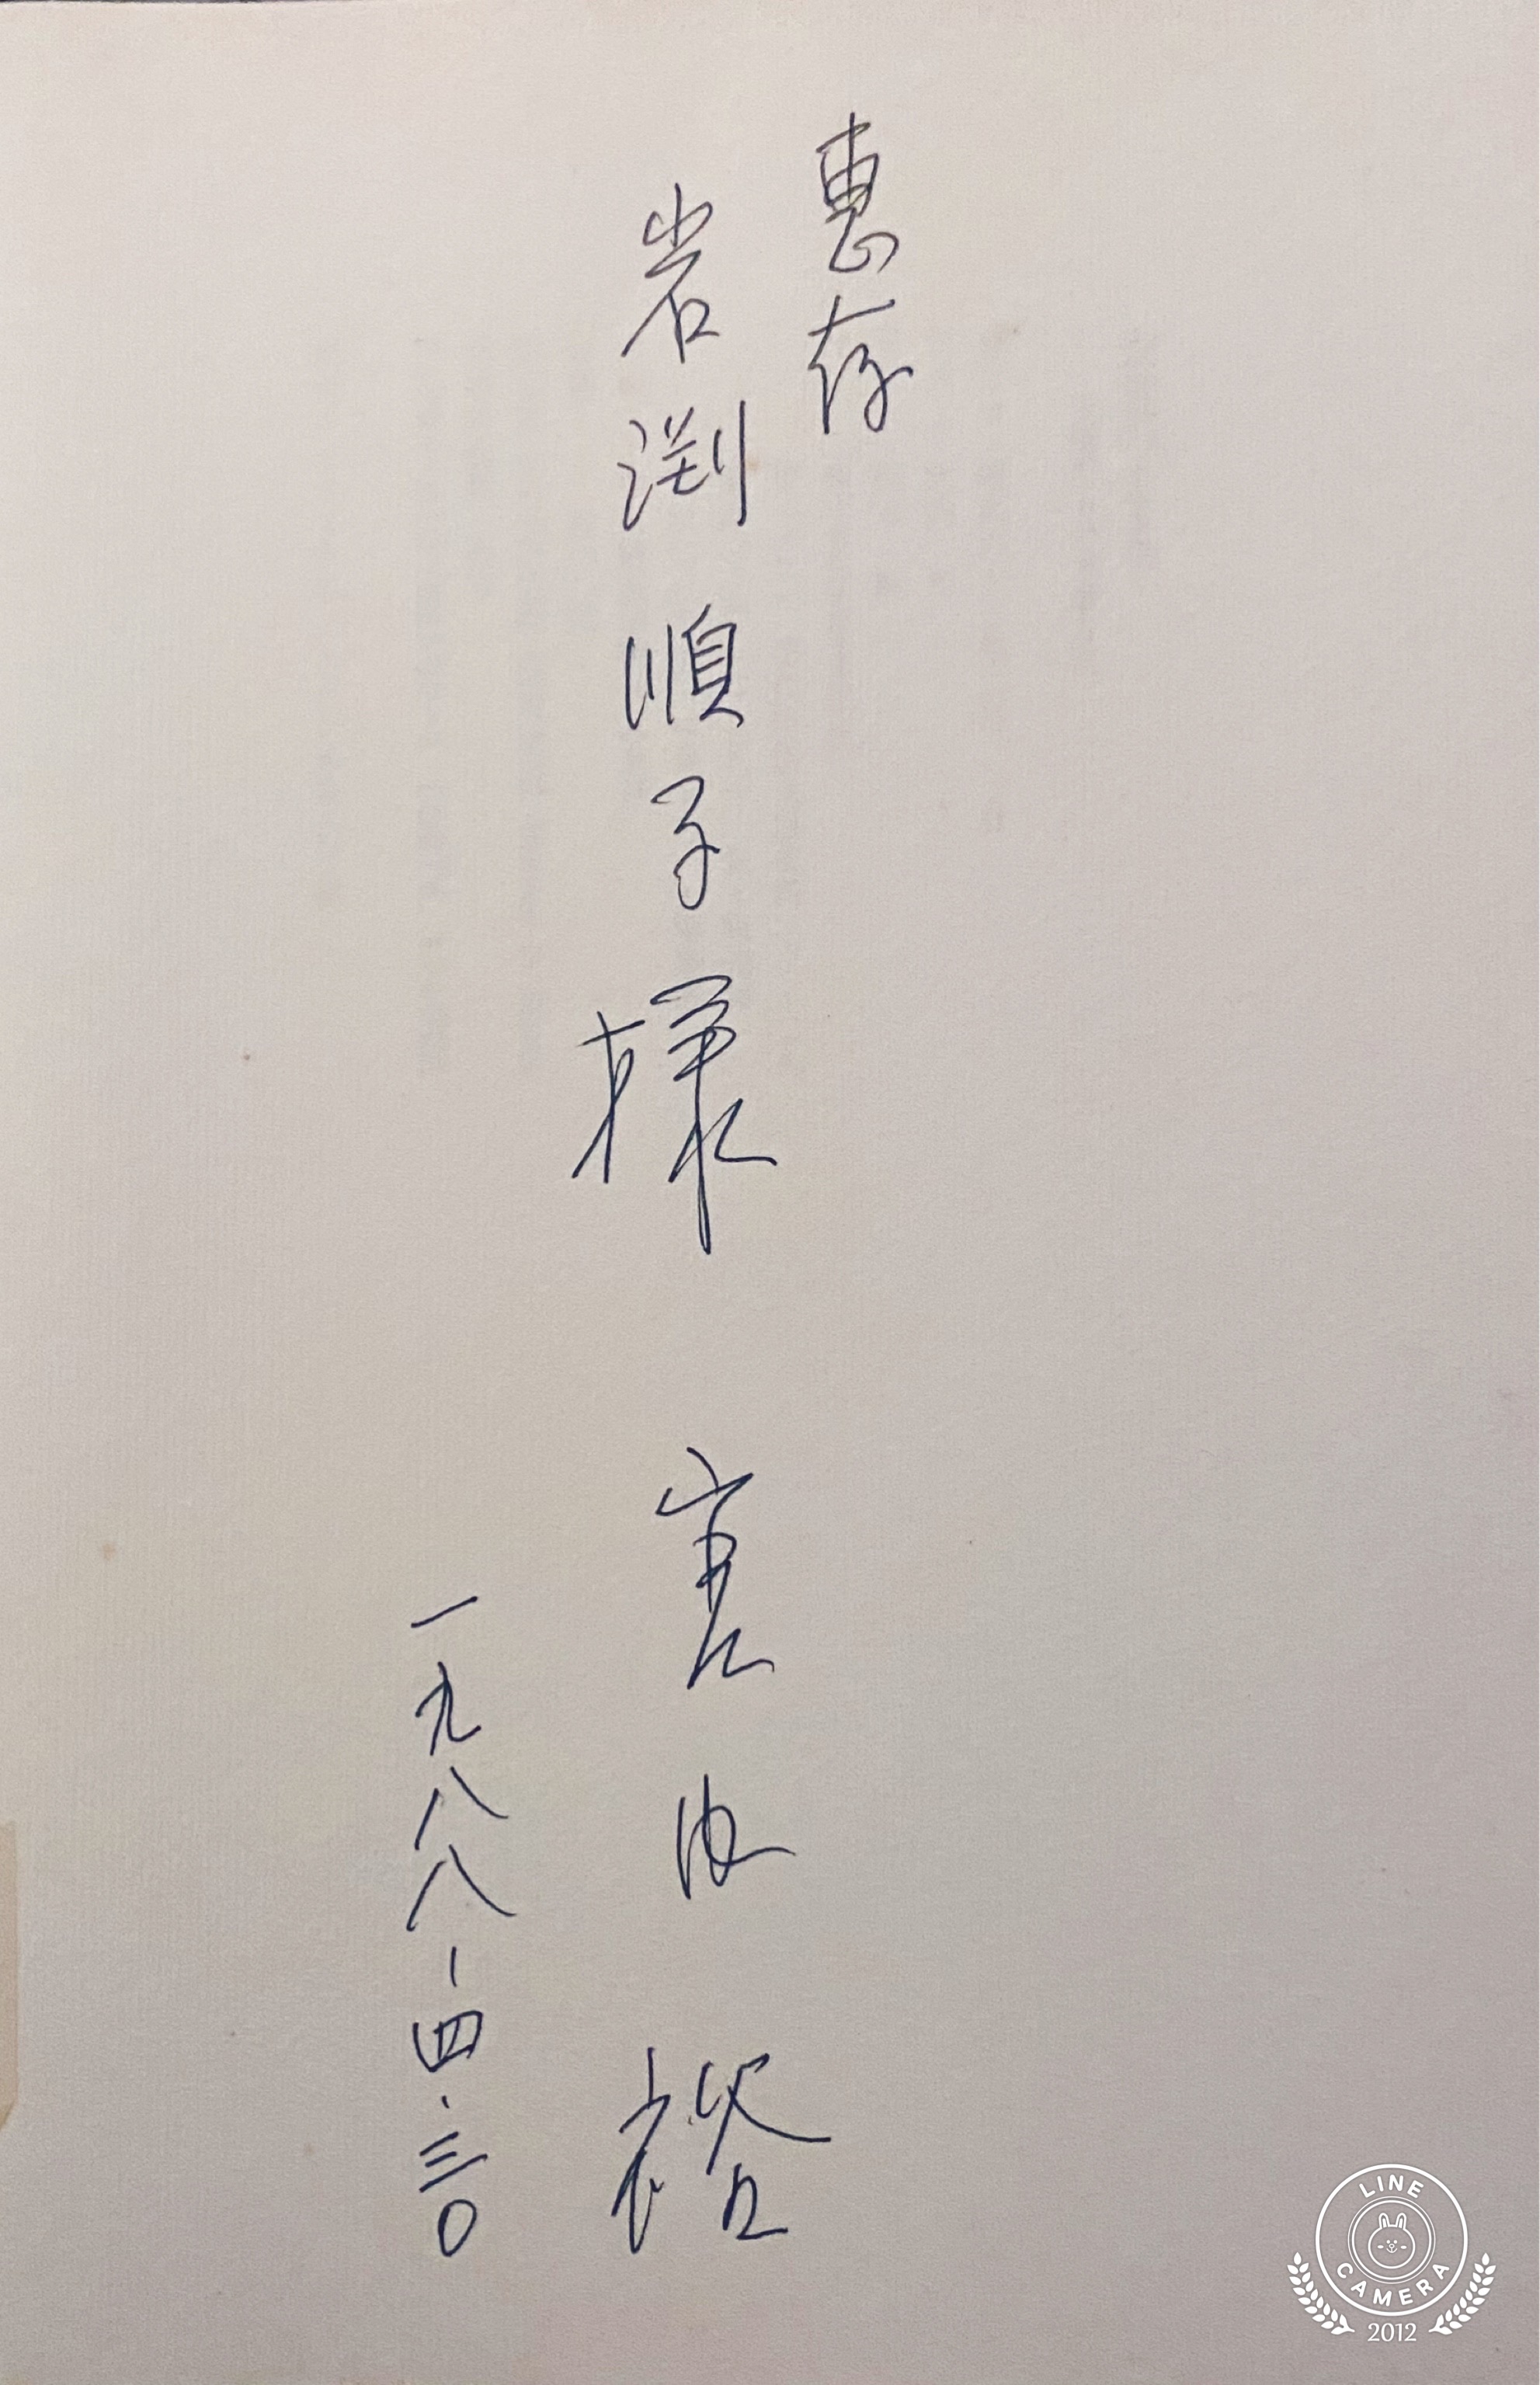 惠存
岩渕順子様
裕
一九八八-四.三〇
LINE
CAMERA
2012